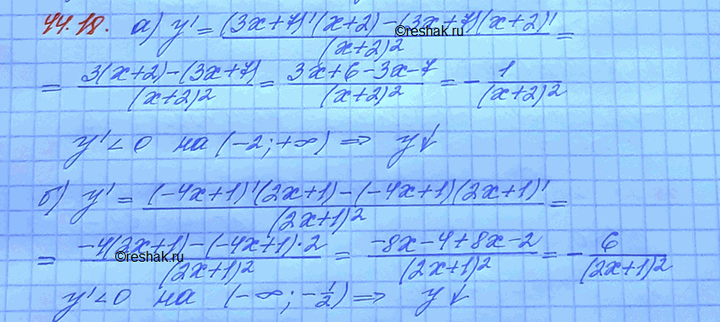 44.18. а) y' = (3x+7)'(x+2)-(3x+7)(x+2)' / (x+2)² =
= 3(x+2)-(3x+7) / (x+2)² = 3x+6-3x-7 / (x+2)² = - 1 / (x+2)²
y' < 0 на (-2; +∞) => y↓
б) y' = (-4x+1)'(2x+1)-(-4x+1)(2x+1)' / (2x+1)² =
= -4(2x+1)-(-4x+1)·2 / (2x+1)² = -8x-4+8x-2 / (2x+1)² = - 6 / (2x+1)²
y' < 0 на (-∞; -1/2) => y↓
©reshak.ru
©reshak.ru